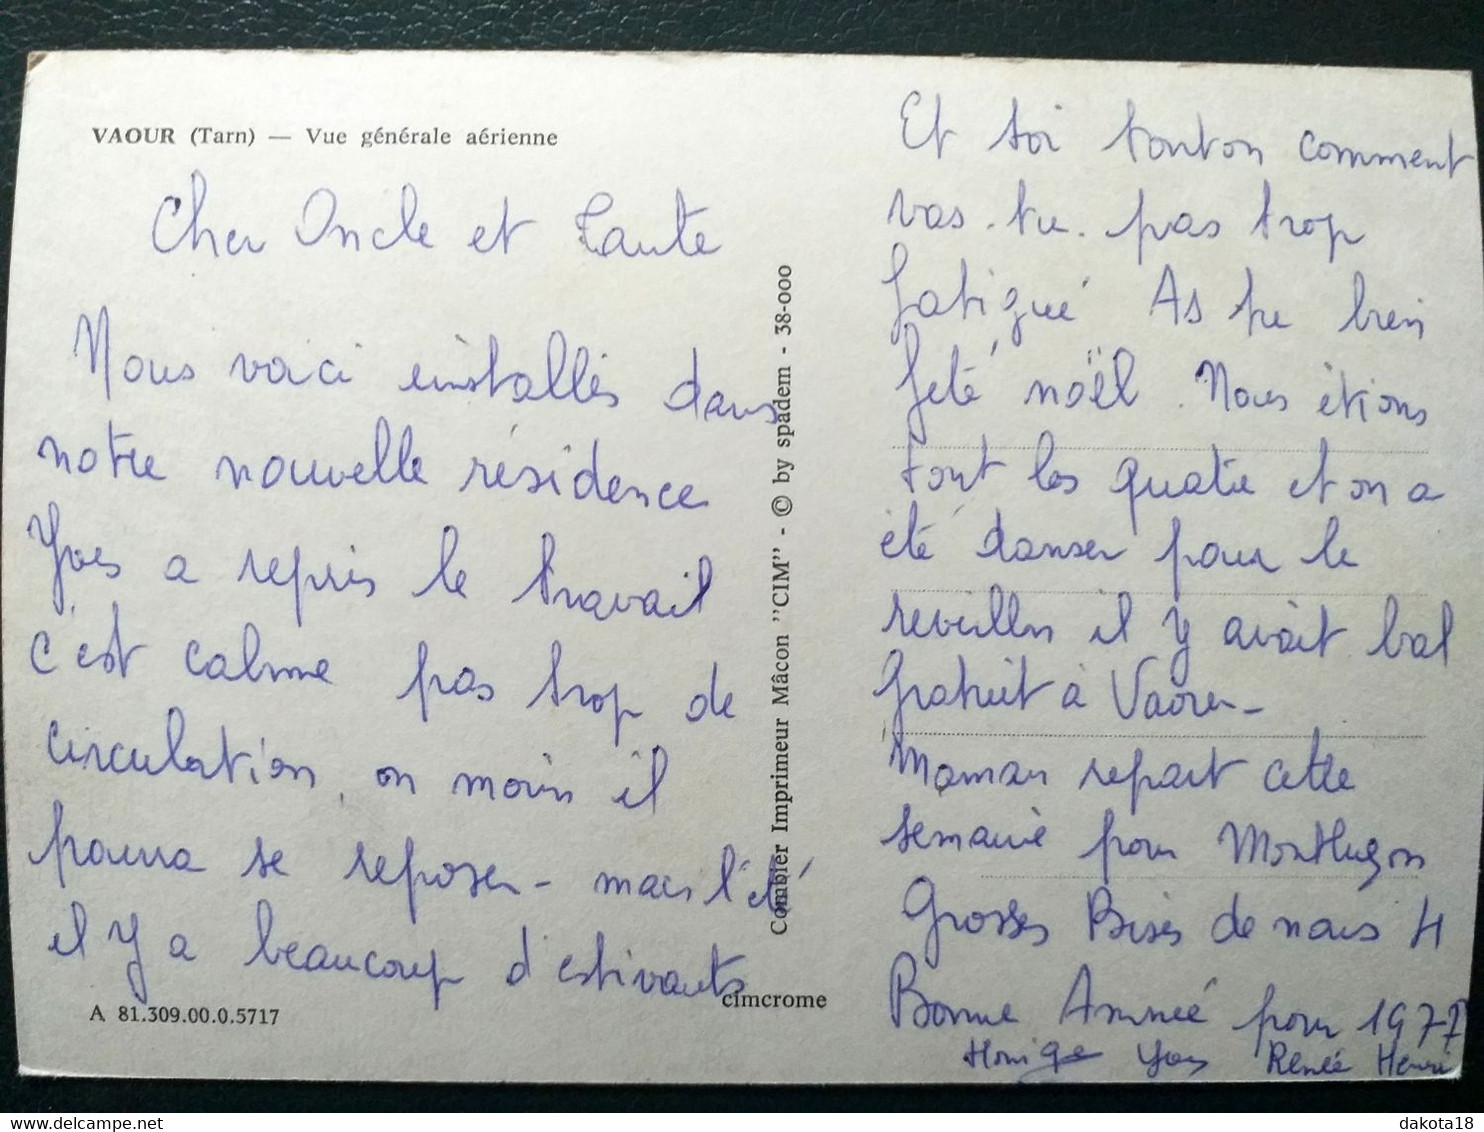 VAOUR (Tarn) — Vue générale aérienne
Cher Oncle et Tante
Nous voici installés dans
notre nouvelle résidence
Yves a repris le travail
c'est calme pas trop de
circulation, on moin il
pourra se reposer - mais l'été
il y a beaucoup d'estivants
A 81.309.00.0.5717
cimcrome
Combier Imprimeur Mâcon "CIM" - © by spadem - 38-000
Et toi tonton comment
vas-tu. pas trop
fatigué As tu bien
fêté noël. Nous étions
tout les quatre et on a
été danser pour le
reveillon il y avait bal
gratuit à Vaour -
Maman repart cette
semaine pour Montluçon
Grosses Bises de nous 4
Bonne Année pour 1977
Yves Renée Henri
dakota18